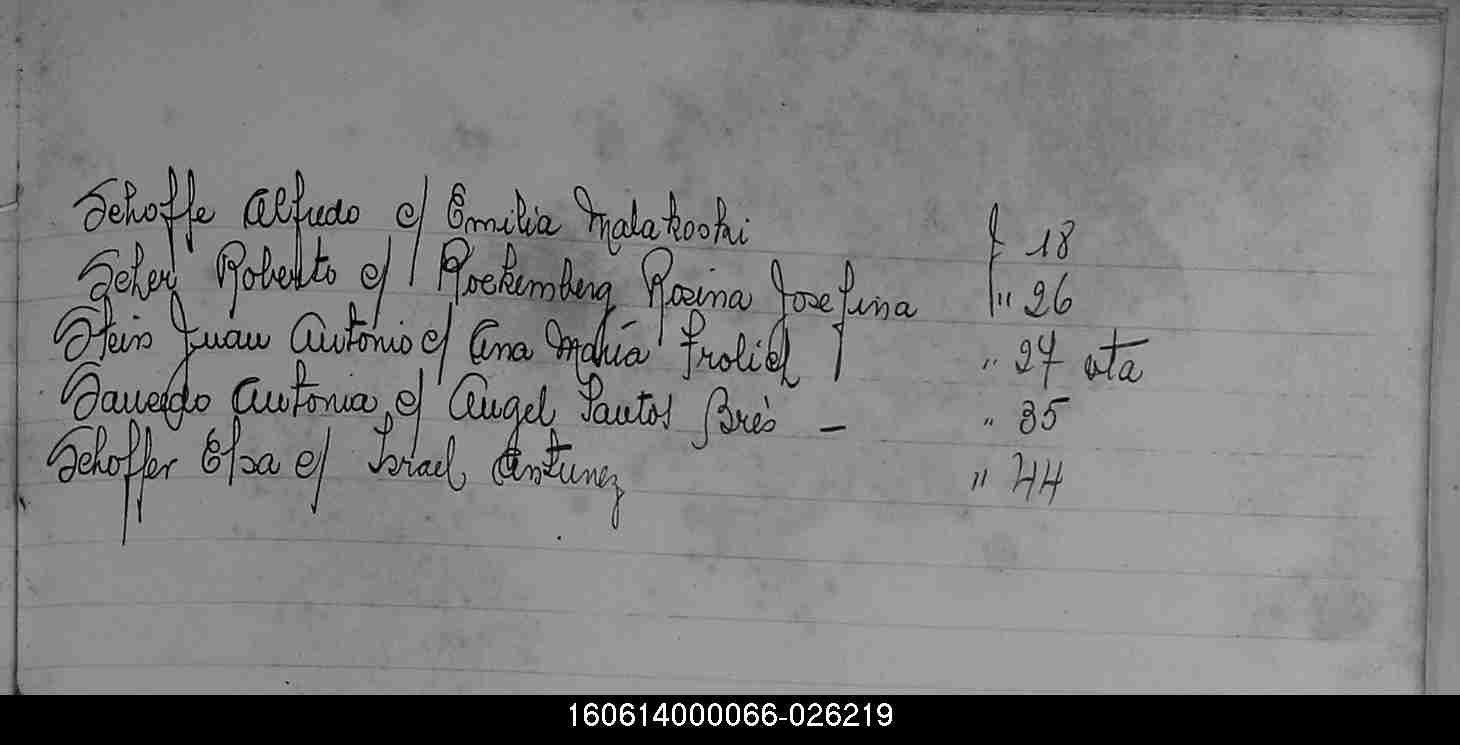 Schoffe Alfredo c/ Emilia Malakoski f 18
Scher Roberto c/ Rockemberg Rosina Josefina " 26
Stein Juan Antonio c/ Ana María Frolich " 27 vta
Saucedo Antonia c/ Angel Santos Brés – " 35
Schoffer Elsa c/ Israel Antunez " 44
160614000066-026219